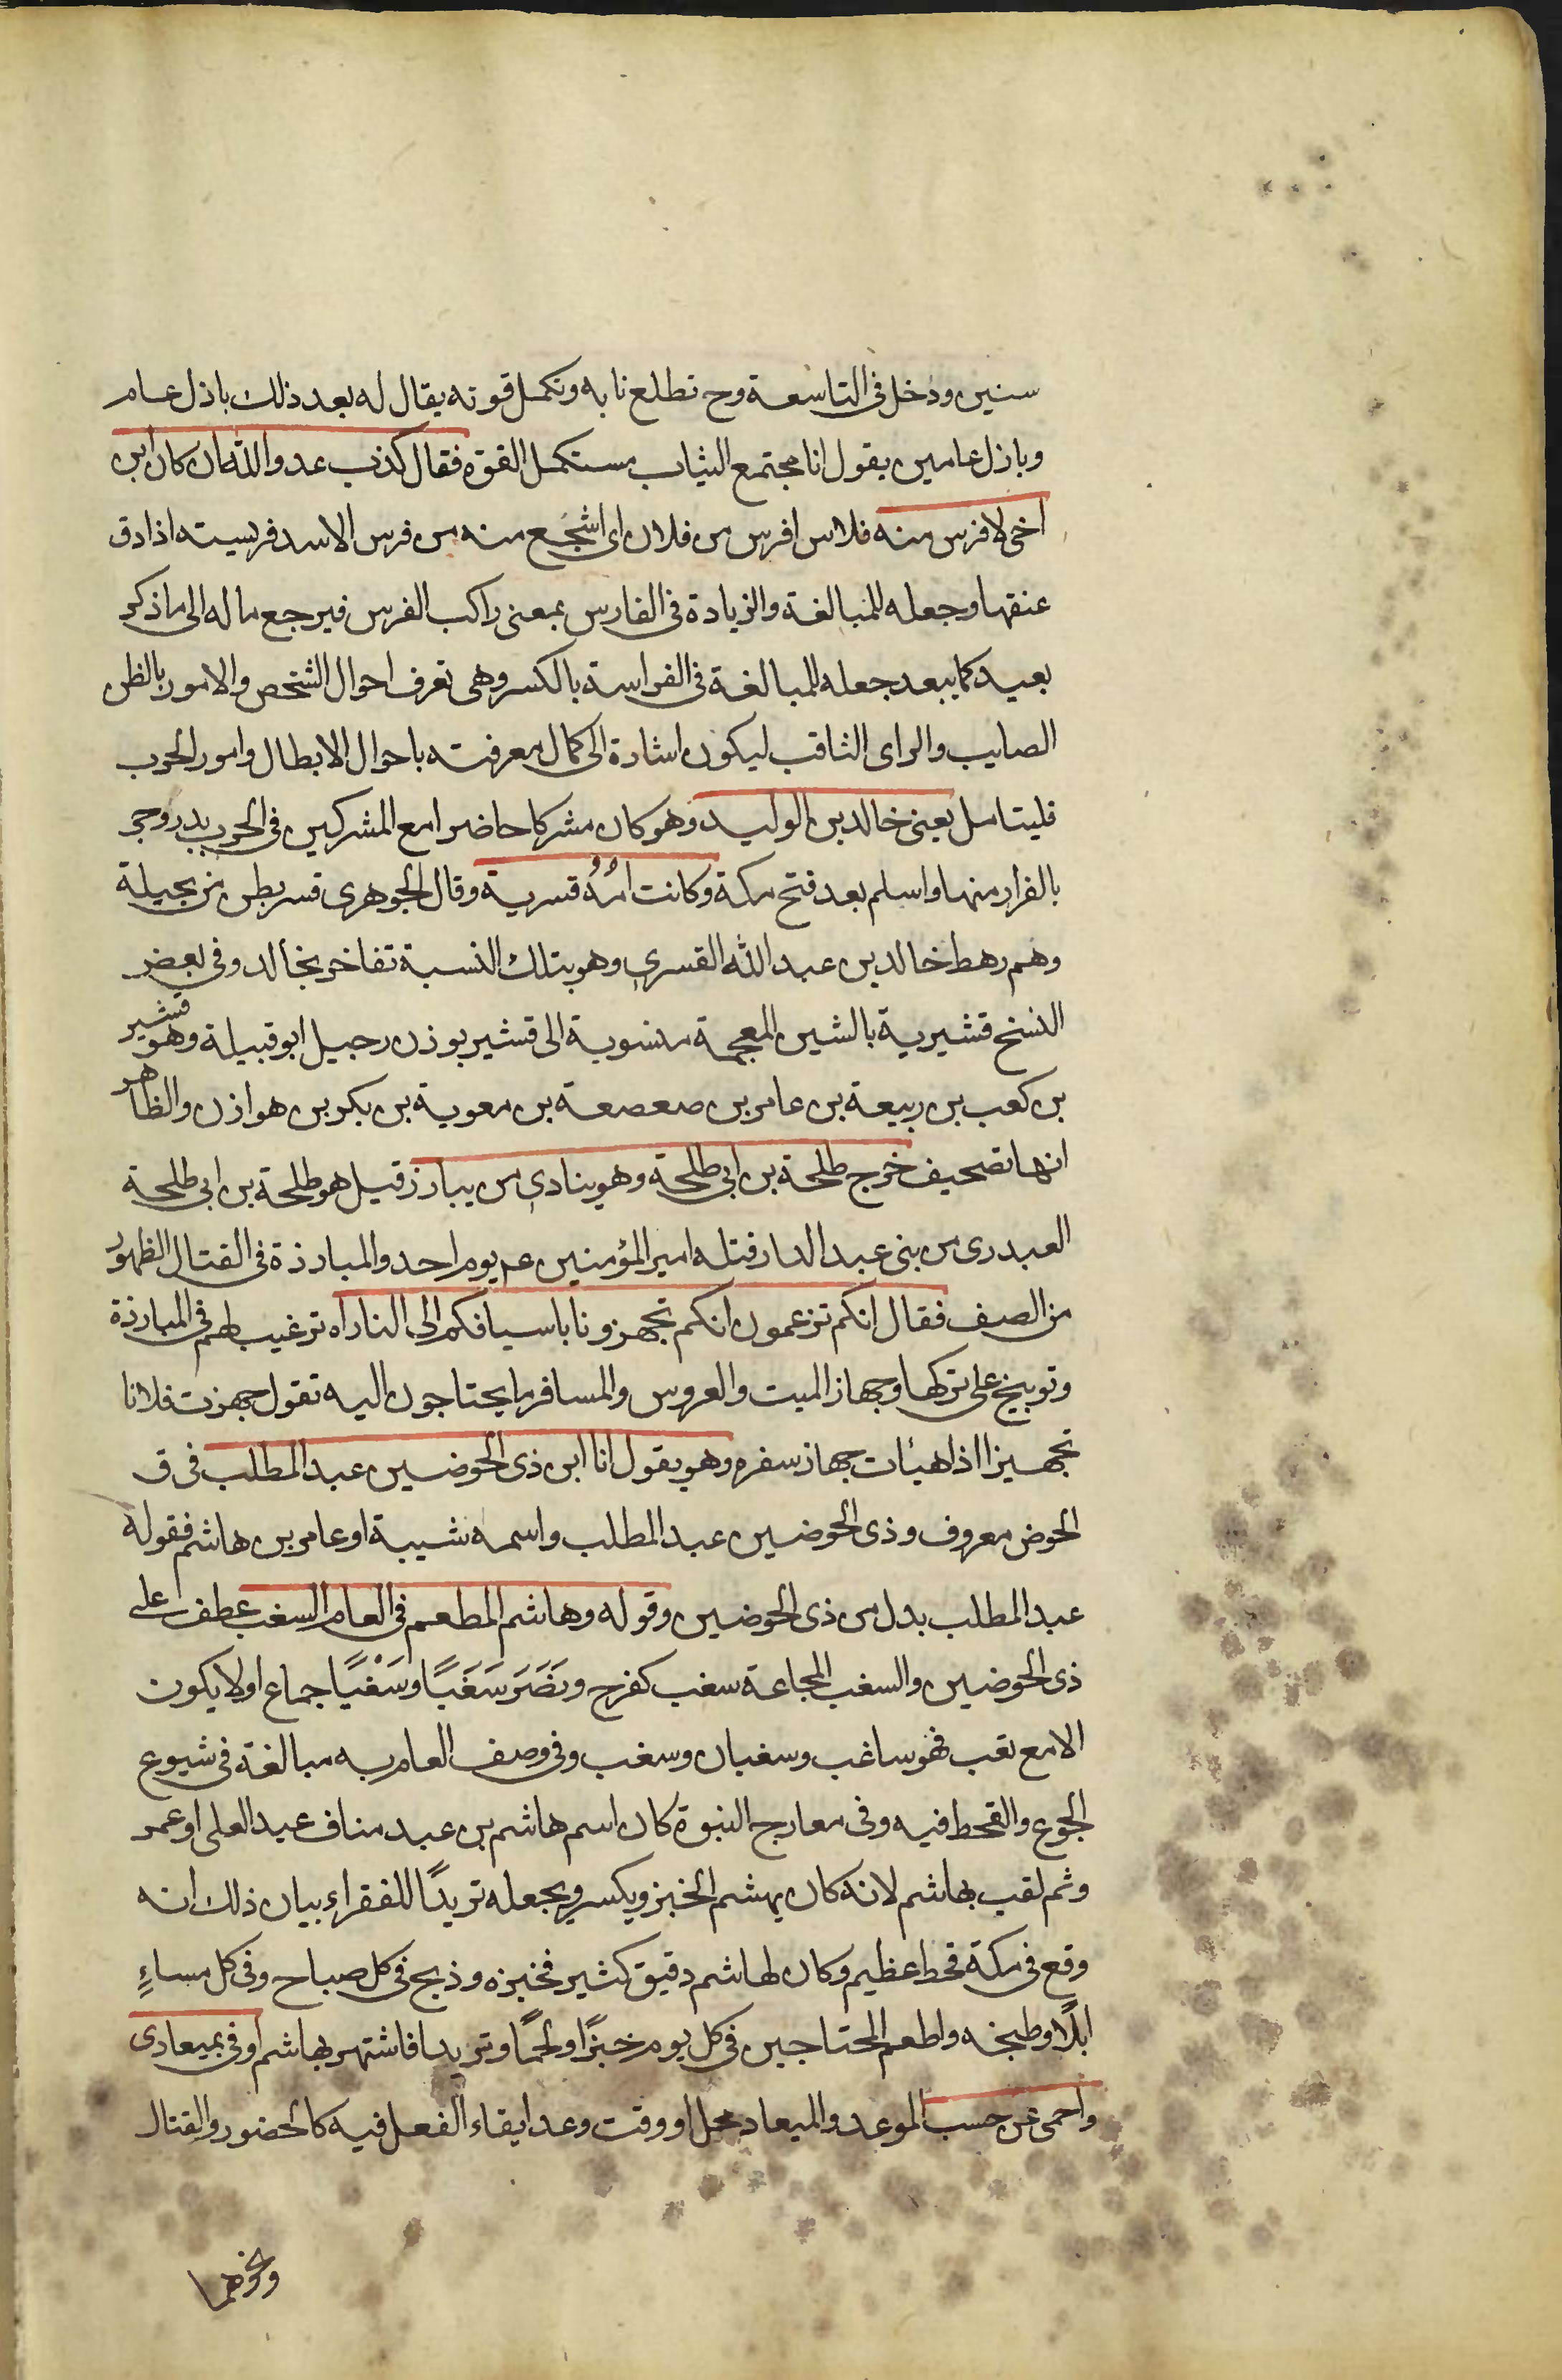 سنين ودخل فى التاسعة وح تطلع نابه وتكمل قوته يقال له بعد ذلك باذل عام
وباذل عامين يقول انا مجتمع الشباب مستكمل القوة فقال كذب عدو الله ان كان ابن
اخى لافرس منه فلاس افرس من فلان اى اشجع منه من فرس الاسد فريسته اذا دق
عنقها وجعله للمبالغة والزيادة فى الفارس بمعنى راكب الفرس فيرجع ماله الى ما ذكر
بعيد كما يبعد جعله للمبالغة فى الفراسة بالكسر وهى تعرف احوال الشخص والامور بالظن
الصايب والراى الثاقب ليكون اشارة الى كمال معرفته باحوال الابطال وامور الحرب
فليتامل يعنى خالد بن الوليد وهو كان مشركا حاضرا مع المشركين فى الحرب بدر وجى
بالفرار منها واسلم بعد فتح مكة وكانت امه قسرية وقال الجوهرى قسر بطن من بجيلة
وهم رهط خالد بن عبد الله القسرى وهو بتلك النسبة تفاخر بخالد وفى بعض
النسخ قشيرية بالشين المعجمة منسوبة الى قشير بوزن رجيل ابو قبيلة وهو قشير
بن كعب بن ربيعة بن عامر بن صعصعة بن معوية بن بكر بن هوازن والظاهر
انها تصحيف خرج طلحة بن ابى طلحة وهو ينادى من يبارز قيل هو طلحة بن ابى طلحة
العبدرى من بنى عبد الدار قتله امير المؤمنين عم يوم احد والمبارزة فى القتال الظهور
من الصف فقال انكم تزعمون انكم تجهزونا باسيافكم الى النار اه ترغيب لهم فى المبارزة
وتوبيخ على تركها وجهاز الميت والعروس والمسافر ما يحتاجون اليه تقول جهزت فلانا
تجهيزا اذا هيأت جهاز سفره وهو يقول انا ابن ذى الحوضين عبد المطلب فى ق
الحوض معروف وذى الحوضين عبد المطلب واسمه شيبة او عامر بن هاشم فقوله
عبد المطلب بدل من ذى الحوضين وقوله وهاشم المطعم فى العام السغب عطف على
ذى الحوضين والسغب المجاعة سغب كفرح ونَصَرَ سَغَبًا وسَغْبًا جماع او لا يكون
الا مع تعب فهو ساغب وسغبان وسغب وفى وصف العام به مبالغة فى شيوع
الجوع والقحط فيه وفى معارج النبوة كان اسم هاشم بن عبد مناف عبد العلى او عمر
وثم لقب بهاشم لانه كان يهشم الخبز ويكسر ويجعله تريدًا للفقراء بيان ذلك انه
وقع فى مكة قحط عظيم وكان لهاشم دقيق كثير فخبزه وذبح فى كل صباح وفى كل مساءٍ
ابلًا وطبخه واطعم المحتاجين فى كل يوم خبزًا ولحمًا وتريدا فاشتهر بهاشم اوفى بميعادى
واحمى عن حسب الموعد والميعاد محل او وقت وعد ايقاء الفعل فيه كالحضور والقتال
ونحوهما